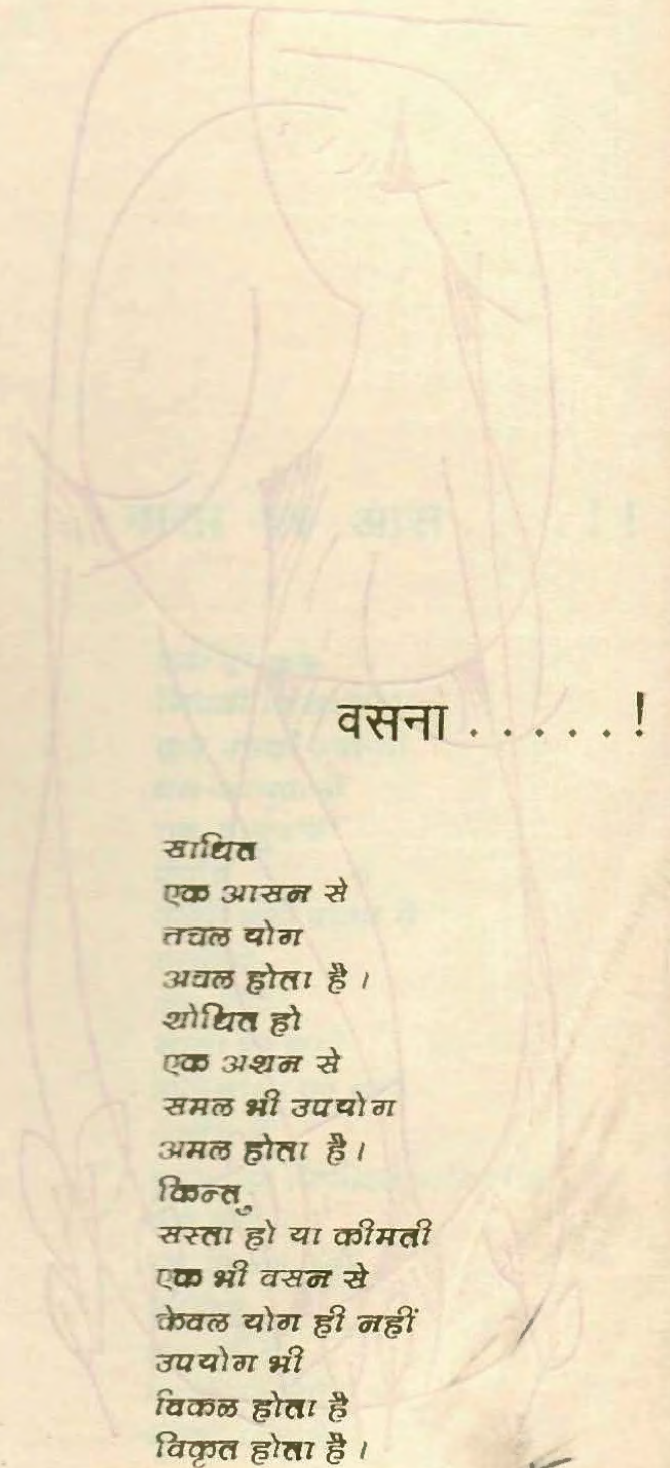 वसना . . . . . !
साधित
एक आसन से
तचल योग
अचल होता है ।
शोधित हो
एक अशन से
समल भी उपयोग
अमल होता है ।
किन्तु
सस्ता हो या कीमती
एक भी वसन से
केवल योग ही नहीं
उपयोग भी
विकल होता है
विकृत होता है ।